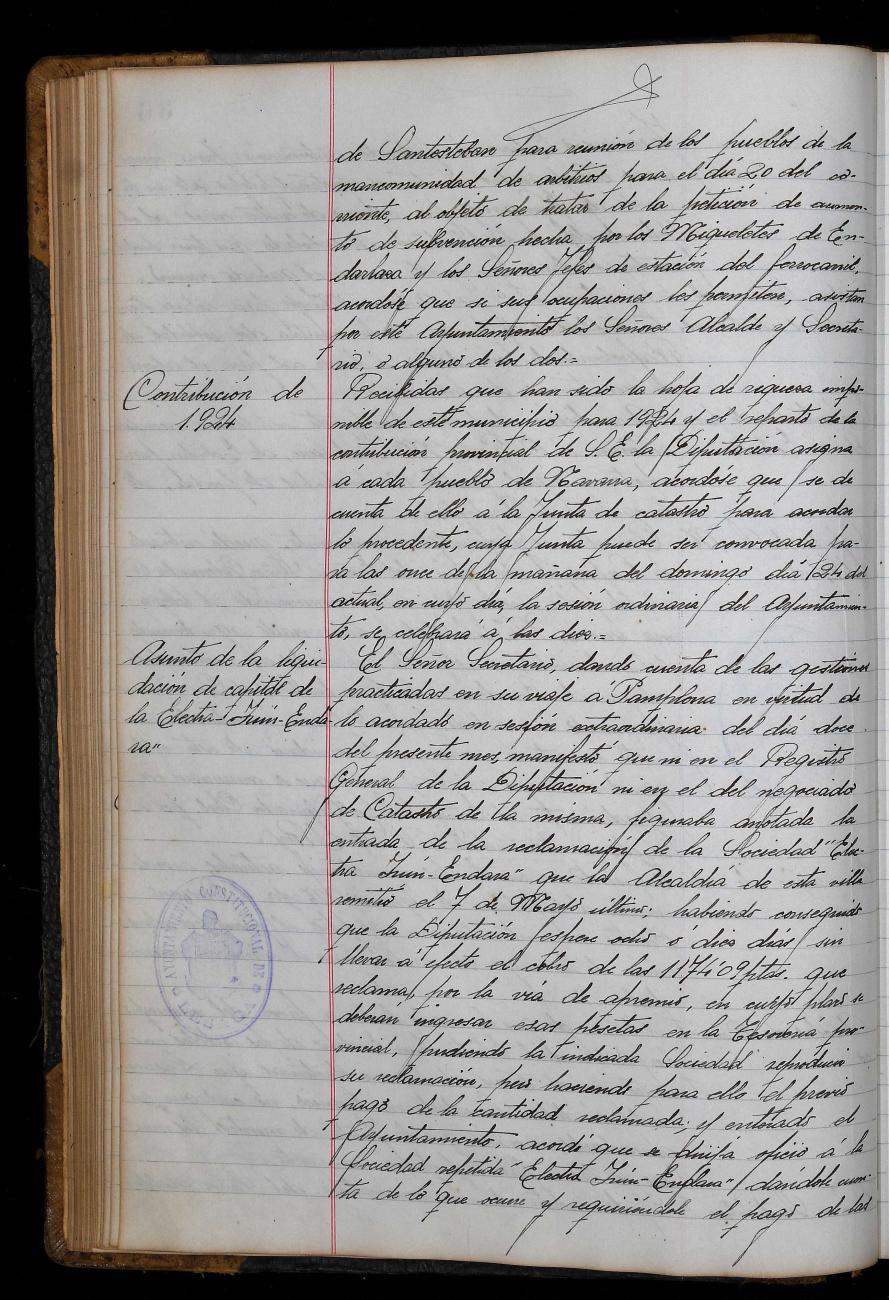 de Santesteban para reunión de los pueblos de la
mancomunidad de arbitrios para el día 20 del co-
rriente, al objeto de tratar de la petición de aumen-
to de subvención hecha por los Migueletes de En-
darlaza y los Señores Jefes de estación del ferrocarril,
acordóse que si sus ocupaciones les permiten, asistan
por este Ayuntamiento los Señores Alcalde y Secreta-
rio, o alguno de los dos.=
Contribución de
1.924
Recibidas que han sido la hoja de riqueza impo-
nible de este municipio para 1924 y el reparto de la
contribución provincial de S.E. la Diputación asigna
á cada pueblo de Navarra, acordóse que se dé
cuenta de ello á la Junta de catastro para acordar
lo procedente, cuya Junta puede ser convocada pa-
ra las once de la mañana del domingo día 24 del
actual, en cuyo día, la sesión ordinaria del Ayuntamien-
to, se celebrará á las diez.=
Asunto de la liqui-
dación de capital de
la Electra-Irún-Enda-
ra"
El Señor Secretario, dando cuenta de las gestiones
practicadas en su viaje a Pamplona en virtud de
lo acordado en sesión extraordinaria del día doce
del presente mes, manifestó que ni en el Registro
General de la Diputación ni en el del negociado
de Catastro de la misma, figuraba anotada la
entrada de la reclamación de la Sociedad "Elec-
tra Irún-Endara" que la Alcaldía de esta villa
remitió el 7 de Mayo último; habiendo conseguido
que la Diputación espere ocho ó diez días sin
llevar a efecto el cobro de las 1174'09 ptas. que
reclama, por la vía de apremio, en cuyo plazo se
deberán ingresar esas pesetas en la Tesorería pro-
vincial, pudiendo la indicada Sociedad reproducir
su reclamación, pero haciendo para ello el previo
pago de la cantidad reclamada; y enterado el
Ayuntamiento, acordó que se dirija oficio á la
Sociedad repetida "Electra Irún-Endara" dándole cuen-
ta de lo que ocurre y requiriéndole el pago de las
AYUNTAMIENTO CONSTITUCIONAL DE